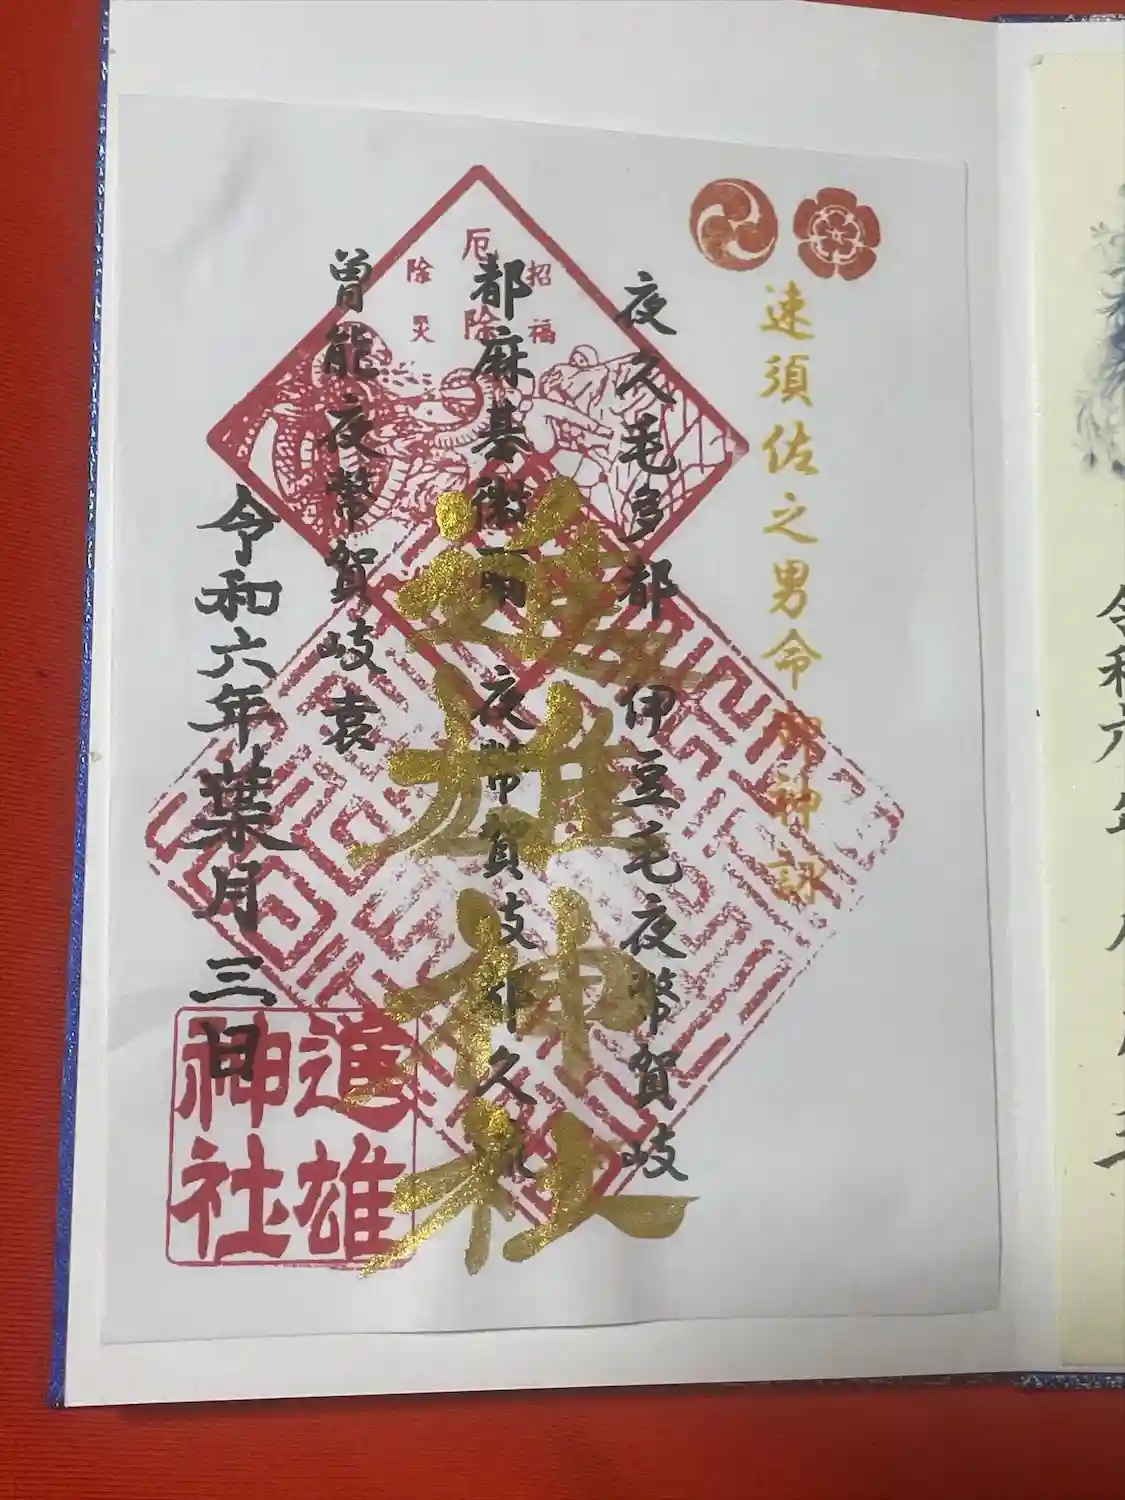 速須佐之男命 御神詠
夜久毛多都 伊豆毛夜幣賀岐
都麻碁微爾 夜幣賀岐都久流
曽能夜幣賀岐袁
招福
厄除
除災
進雄神社
令和六年葉月三日
進雄神社
令和六年